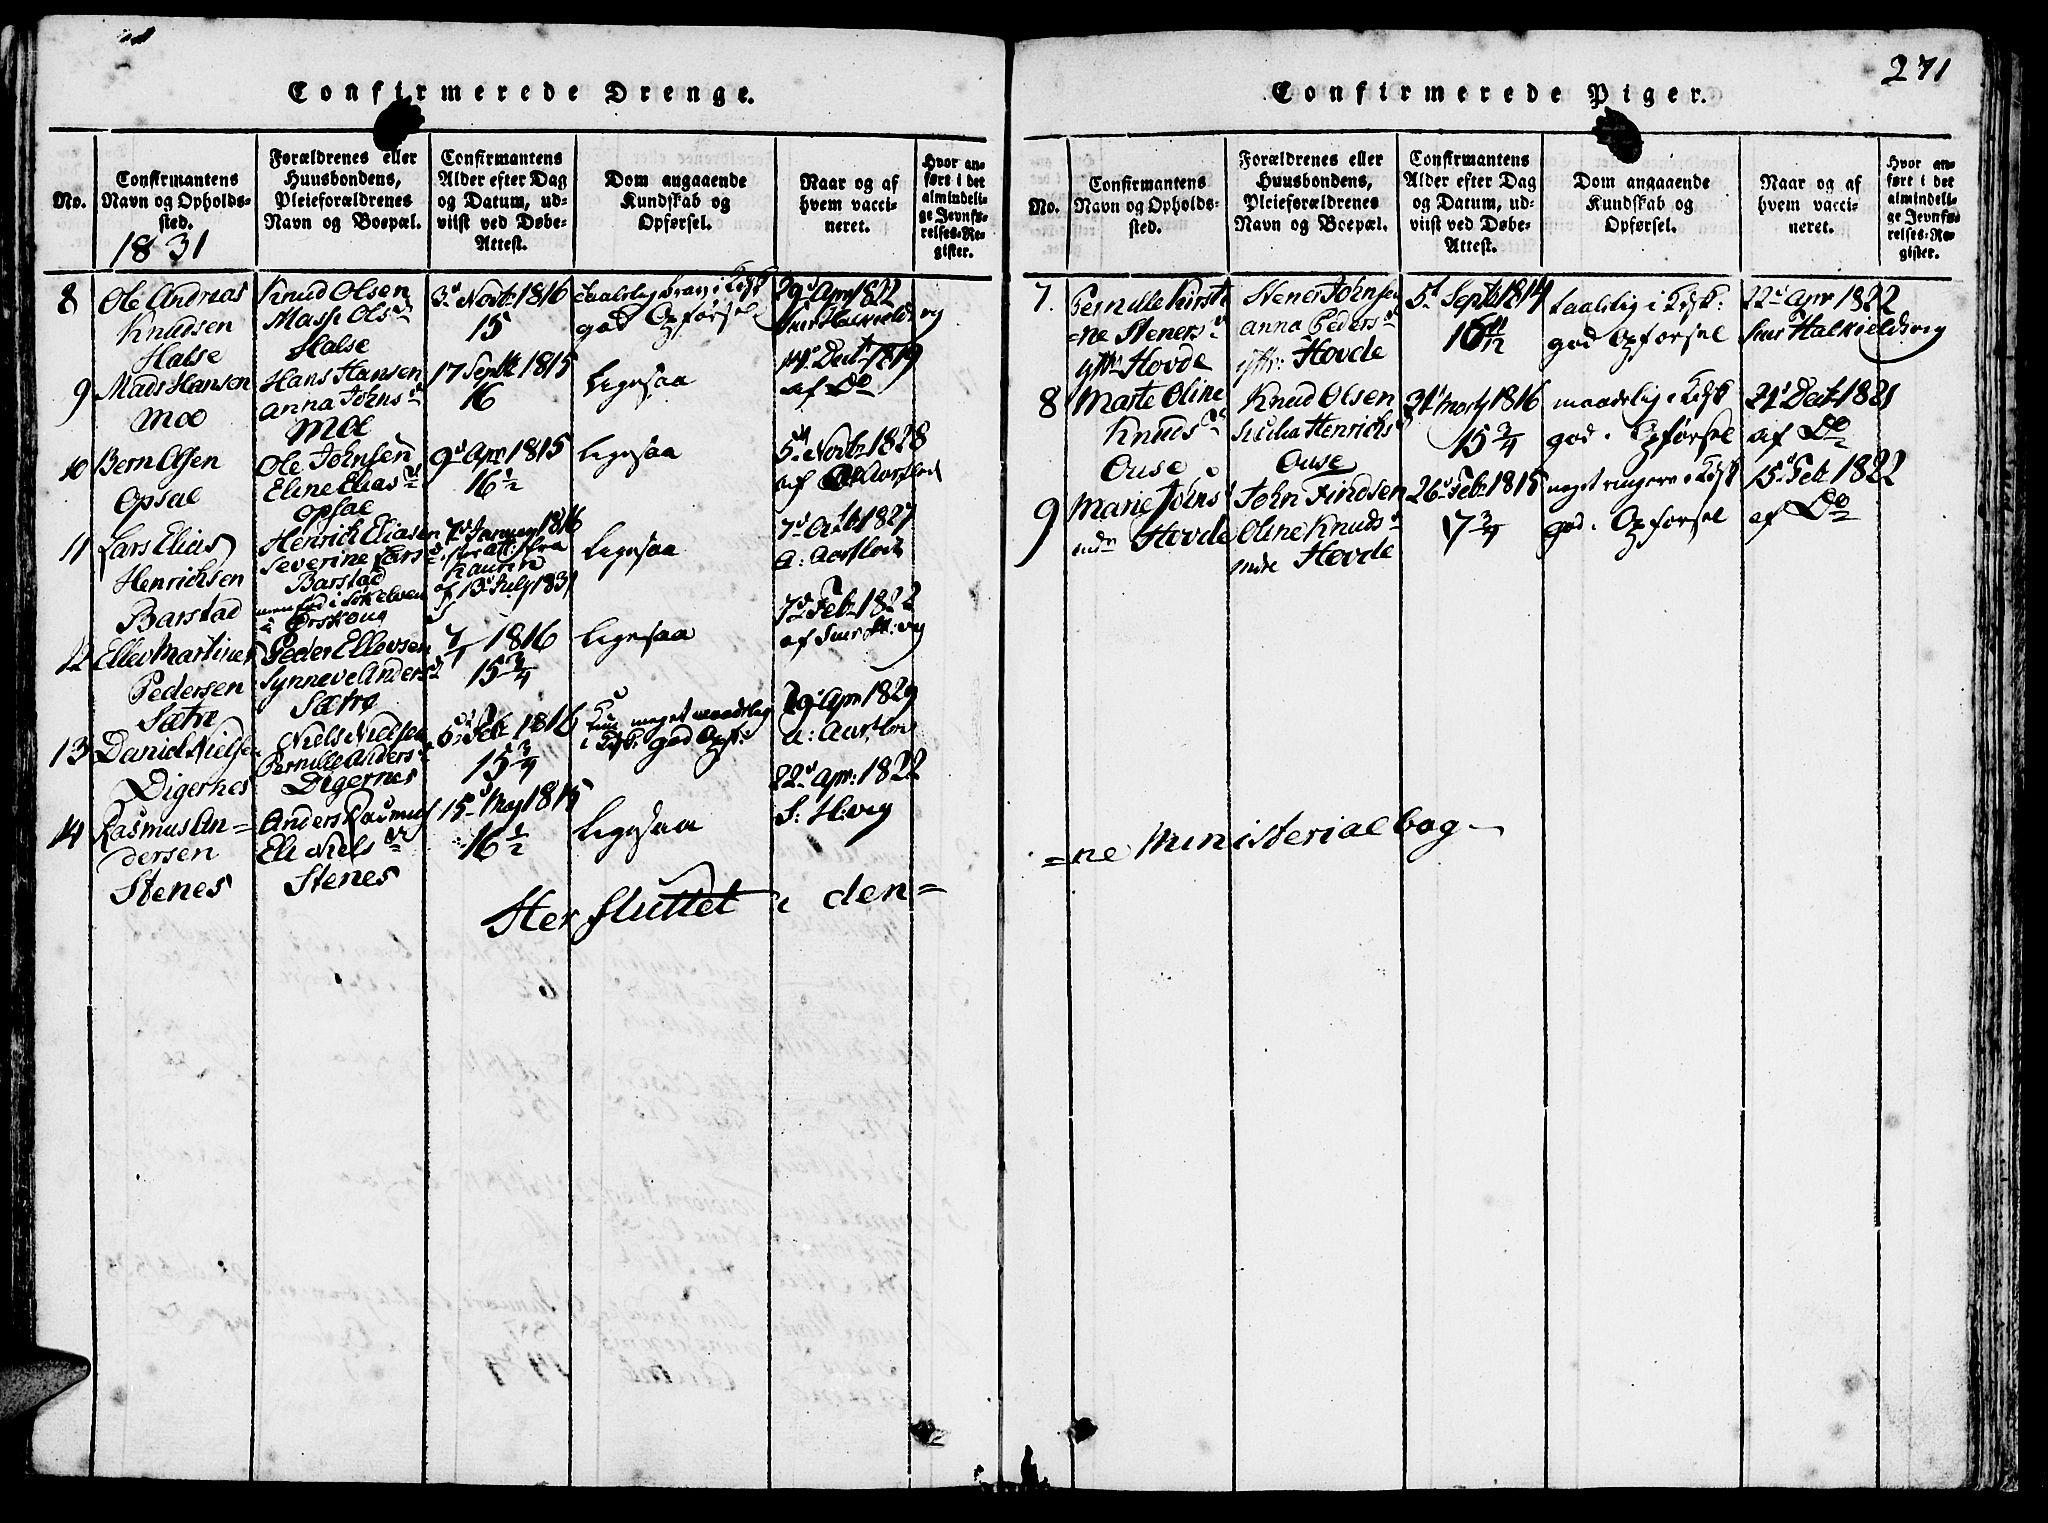 271
Confirmerede Drenge.
No.
Confirmantens
Navn og Opholds-
sted.
1831
Forældrenes eller
Huusbondens,
Pleieforældrenes
Navn og Boepæl.
Confirmantens
Alder efter Dag
og Datum, ud-
viist ved Døbe-
Attest.
Dom angaaende
Kundskab og
Opførsel.
Naar og af
hvem vacci-
neret.
Hvor an-
ført i det
almindeli-
ge Jevnfø-
relses-Re-
gister.
8
Ole Andreas
Knudsen
Halse
Knud Olsen
Massi Olsd
Halse
3d Novbr 1816
15
god Opførsel
29d Apr 1822
9
Mads Hansen
Moe
Hans Hansen
Anna Johnsd
Moe
17 Septb 1815
16
Ligesaa
14d Decbr 1819
af Do
10
Bern Olsen
Opsal
Ole Johnsen
Eline Eliasd
Opsal
9d Apr 1815
16 1/2
Ligesaa
5d Novbr 1828
af Aarflot
11
Lars Elias
Henrichsen
Barstad
Henrich Eliasen
Severine Larsd
Barstad
i Ørskoug
7d Januar 1816
af 13d July 1831
Ligesaa
7d Octb 1827
a: Aarflot
12
Ellev Martinus
Pedersen
Sætre
Peder Ellevsen
Synneve Andersd
Sætre
7/1 1816
15 3/4
Ligesaa
7d Feb 1822
af Smr H:vig
13
Daniel Nielsen
Digernes
Niels Nielsen
Pernille Andersd
Digernes
5d Feb 1816
15 3/4
Kun meget maadelig
i Kdsk. god Opf:
29d Apr 1829
a: Aarflot
14
Rasmus An=
dersen
Stenes
Anders Rasmus
Eli Nielsd
Stenes
15d May 1815
16 1/2
Ligesaa
22d Apr: 1822
S: H:vig
Her sluttet i den=
Confirmerede Piger.
No.
Confirmantens
Navn og Opholds-
sted.
Forældrenes eller
Huusbondens,
Pleieforældrenes
Navn og Boepæl.
Confirmantens
Alder efter Dag
og Datum, ud-
viist ved Døbe-
Attest.
Dom angaaende
Kundskab og
Opførsel.
Naar og af
hvem vacci-
neret.
Hvor an-
ført i det
almindeli-
ge Jevnfø-
relses-Re-
gister.
7.
Pernille Kirsti
=ne Stenersd
yttr Hovde
Stener Johnsen
Anna Pedersd
yttr: Hovde
5d Septb 1814
16 11/12
taalelig i Kdsk:
god Opførsel
22d Apr 1822
Smr Halkieldsvig
8
Marte Oline
Knudsd
Ouse
Knud Olsen
Sicilia Henrichsd
Ouse
1816
15 3/4
maadelig i Kdsk
god Opførsel
21d Decbr 1821
af Do
9
Marie Johnsd
indr Hovde
John Findsen
Oline Knudsd
indre Hovde
26d Feb 1815
17 3/4
meget ringere i Kdsk
god Opførsel
15d Feb 1822
af Do
=ne Ministerialbog